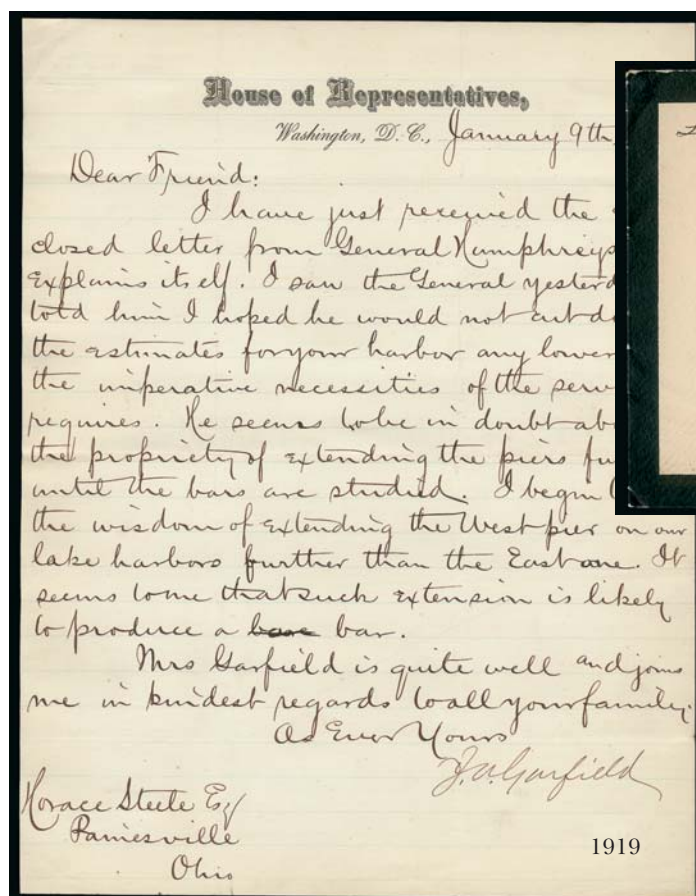 House of Representatives,
Washington, D.C., January 9th
Dear Friend:
I have just received the
closed letter from General Humphreys
Explains itself. I saw the General
told him I hoped he would not cut
the estimates for your harbor any lower
the imperative necessities of the
requires. He seems to be in doubt
the propriety of extending the piers
until the bars are studied. I begin
the wisdom of extending the West pier on our
lake harbors further than the East one. It
seems to me that such extension is likely
to produce a bare bar.
Mrs Garfield is quite well and joins
me in kindest regards to all your family.
As Ever Yours
J.A. Garfield
Horace Steele Esq
Painesville
Ohio
1919